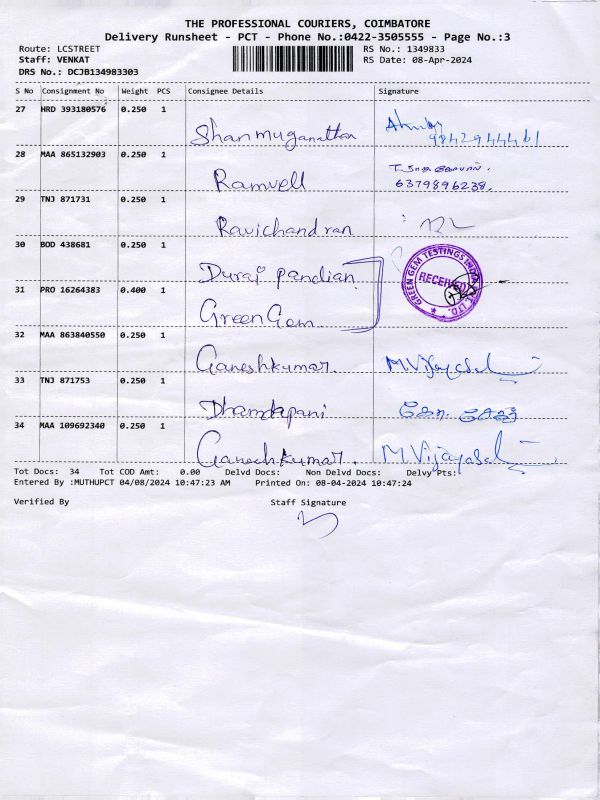 THE PROFESSIONAL COURIERS, COIMBATORE
Delivery Runsheet - PCT - Phone No.:0422-3505555 - Page No.:3
Route: LCSTREET RS No.: 1349833
Staff: VENKAT RS Date: 08-Apr-2024
DRS No.: DCJB134983303
S No Consignment No Weight PCS Consignee Details Signature
27 HRD 393180576 0.250 1
Shanmuganathan 9842944461
28 MAA 865132903 0.250 1
Ramvell 6379896238
29 TNJ 871731 0.250 1
Ravichandran
30 BOD 438681 0.250 1
Durai pandian
GREEN GEM TESTINGS INDIA PVT. LTD.
RECEIVED
31 PRO 16264383 0.400 1
Green Gem
32 MAA 863840550 0.250 1
Ganeshkumar M Vijayasel
33 TNJ 871753 0.250 1
Dhandapani
34 MAA 109692340 0.250 1
Ganeshkumar. M Vijayasel
Tot Docs: 34 Tot COD Amt: 0.00 Delvd Docs: Non Delvd Docs: Delvy Pts:
Entered By :MUTHUPCT 04/08/2024 10:47:23 AM Printed On: 08-04-2024 10:47:24
Verified By Staff Signature